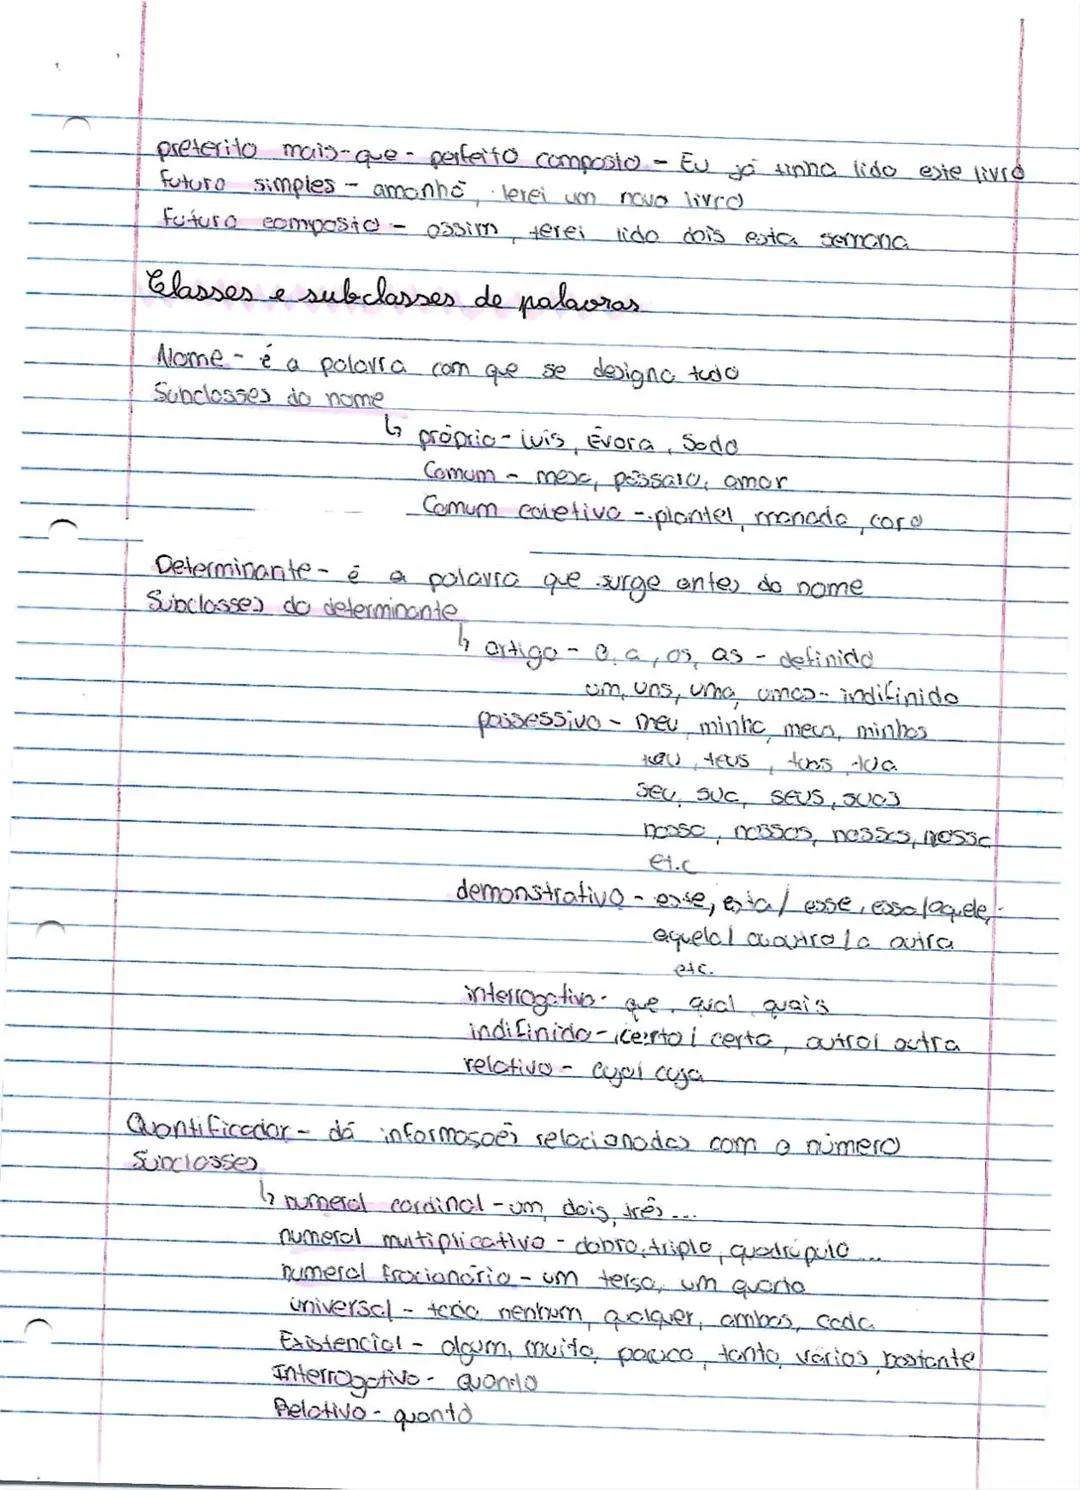 preterito mais-que-perfeito composto - Eu já tinha lido este livro
futuro simples - amanhã, lerei um novo livro
Futuro composto - assim, terei lido dois esta semana
Classes e subclasses de palavras
Nome - é a palavra com que se designa tudo
Subclasses do nome
↳ próprio - luis, Évora, Sado
Comum - mesa, pássaro, amor
Comum coletivo - plantel, manada, coro
Determinante - é a palavra que surge antes do nome
Subclasses do determinante
↳ artigo - o, a, os, as - definido
um, uns, uma, umas - indifinido
possessivo - meu, minha, meus, minhas
teu, teus, tuas, tua
seu, sua, seus, suas
nosso, nossos, nossas, nossa
etc
demonstrativo - este, esta / esse, essa / aquele,
aquela / o outro / a outra
etc.
interrogativo - que, qual, quais
indifinido - certo / certa, outro / outra
relativo - cujo / cuja
Quantificador - dá informasoẽs relacionadas com o número
Subclasses
↳ numeral cardinal - um, dois, três ...
numeral multiplicativo - dobro, triplo, quadrúpulo ...
numeral fracionário - um terso, um quarto
universal - todo, nenhum, qualquer, ambos, cada
Existencial - algum, muito, pouco, tanto, vários, bastante
Interrogativo - quando
Relativo - quanto